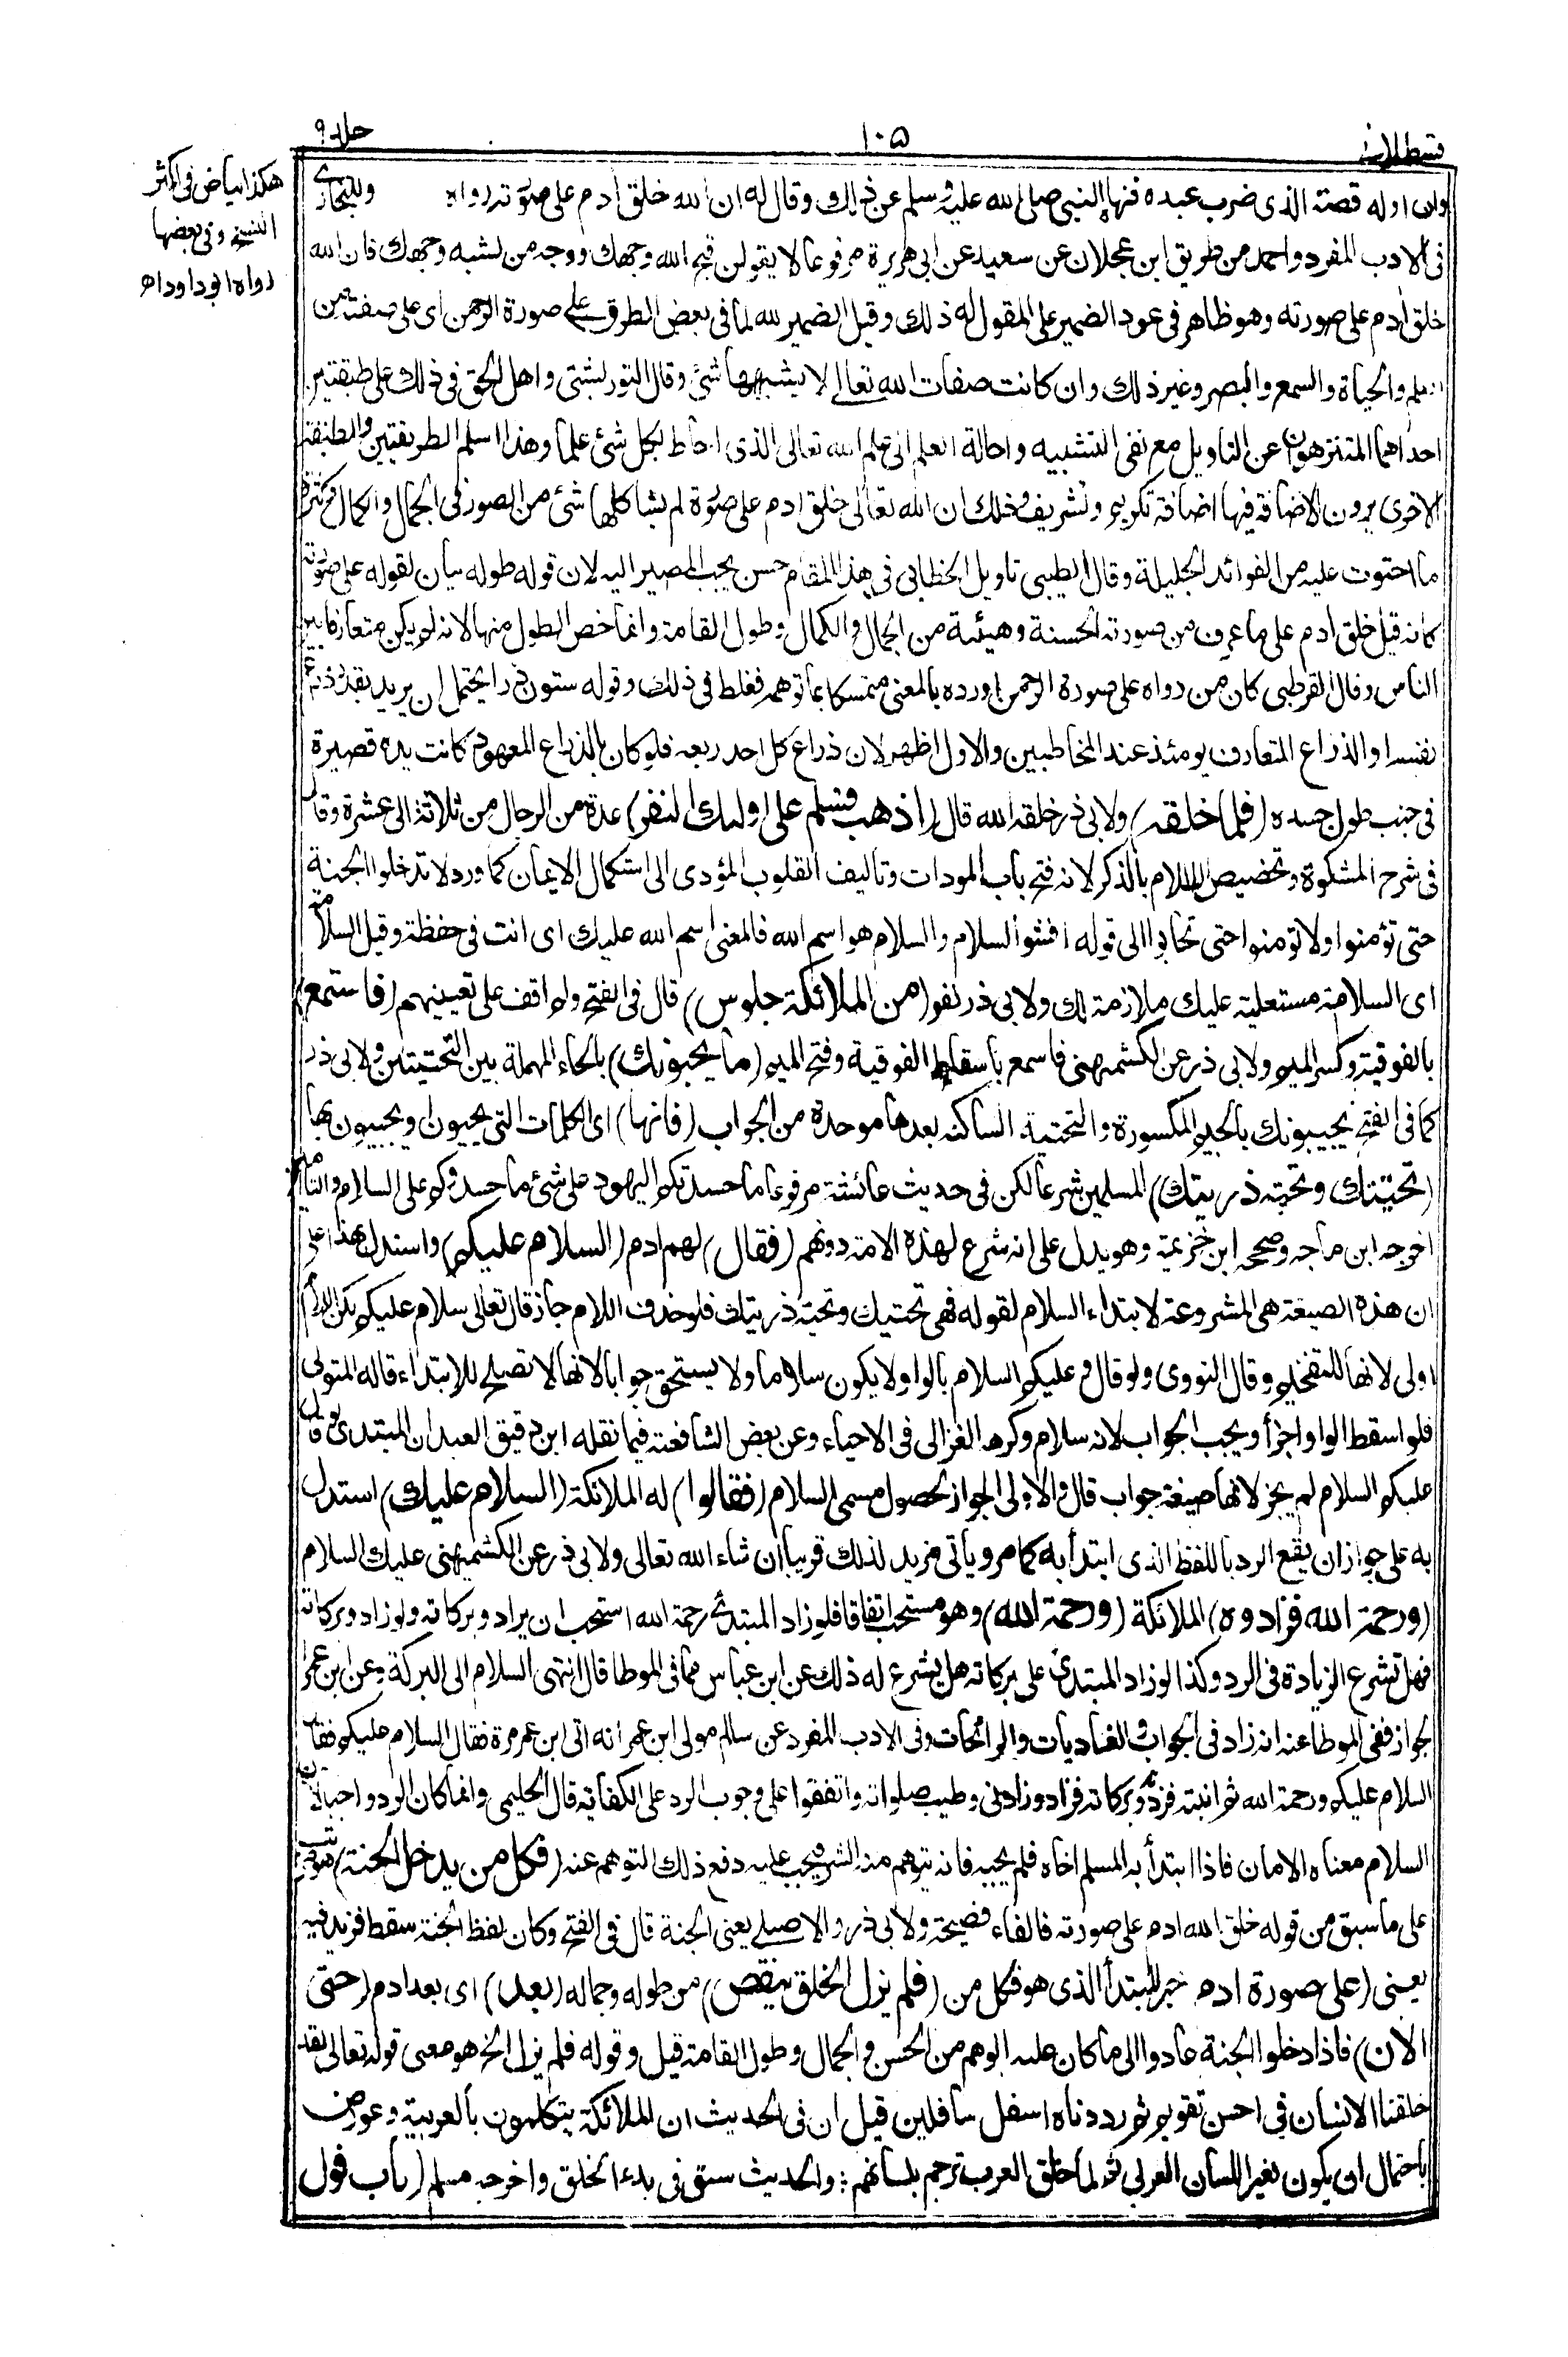 قسطلانی ۱۰۵ جلد ۹
وان اوله قصة الذی ضرب عبده فنهاه النبی صلی الله علیه وسلم عن ذلك وقال له ان الله خلق ادم علی صورته رواه وللبخاری
فی الادب المفرد واحمد من طریق ابن عجلان عن سعید عن ابی هریرة مرفوعا لا یقولن قبح الله وجهك ووجه من اشبه وجهك فان الله
خلق ادم علی صورته وهو ظاهر فی عود الضمیر علی المقول له ذلك وقیل الضمیر لله لما فی بعض الطرق علی صورة الرحمن ای علی صفته من
العلم والحیاة والسمع والبصر وغیر ذلك وان كانت صفات الله تعالی لا یشبهها شئ وقال التوربشتی واهل الحق فی ذلك علی طبقتین
احداهما المتنزهون عن التاویل مع نفی التشبیه واحالة العلم الی علم الله تعالی الذی احاط بكل شئ علما وهذا اسلم الطریقتین والطبقة
الاخری یرون الاضافة فیها اضافة تكریم وتشریف وذلك ان الله تعالی خلق ادم علی صورة لم یشاكلها شئ من الصور فی الجمال والكمال وكثرة
ما احتوت علیه من الفوائد الجلیلة وقال الطیبی تاویل الخطابی فی هذا المقام حسن یجب المصیر الیه لان قوله طوله بیان لقوله علی صورته
كانه قیل خلق ادم علی ما عرف من صورته الحسنة وهیئته من الجمال والكمال وطول القامة وانما خص الطول منها لانه لم یكن متعارفا بین
الناس وقال القرطبی كان من رواه علی صورة الرحمن اورده بالمعنی متمسكا بما توهمه فغلط فی ذلك وقوله ستون ذراعا یحتمل ان یرید بقدر ذراع
نفسه او الذراع المتعارف یومئذ عند المخاطبین والاول اظهر لان ذراع كل احد ربعه فلو كان بالذراع المعهود كانت یده قصیرة
فی جنب طول جسده (فلما خلقه) ولابی ذر خلقه الله قال (اذهب فسلم علی اولئك النفر) عدة من الرجال من ثلاثة الی عشرة وقال
فی شرح المشكوة وتخصیص السلام بالذكر لانه فتح باب المودات وتالیف القلوب المؤدی الی استكمال الایمان كما ورد لا تدخلوا الجنة
حتی تؤمنوا ولا تؤمنوا حتی تحابوا الی قوله افشوا السلام والسلام هو اسم الله فالمعنی اسم الله علیك ای انت فی حفظه وقیل السلامة
ای السلامة مستعلیة علیك ملازمة لك ولابی ذر نفر (من الملائكة جلوس) قال فی الفتح ولم اقف علی تعیینهم (فاستمع)
بالفوقیة وكسر المیم ولابی ذر عن الكشمیهنی فاسمع باسقاط الفوقیة وفتح المیم (ما یحیونك) بالحاء المهملة بین التحتیتین ولابی ذر
كما فی الفتح یجیبونك بالجیم المكسورة والتحتیة الساكنة بعدها موحدة من الجواب (فانها) ای الكلمات التی یحیون او یجیبون بها
(تحیتك وتحیة ذریتك) المسلمین شرعا لكن فی حدیث عائشة مرفوعا ما حسدتكم الیهود علی شئ ما حسدوكم علی السلام والتامین
اخرجه ابن ماجه وصححه ابن خزیمة وهو یدل علی انه شرع لهذه الامة دونهم (فقال) لهم ادم (السلام علیكم) واستدل بهذا علی
ان هذه الصیغة هی المشروعة لابتداء السلام لقوله فهی تحیتك وتحیة ذریتك فلو حذف اللام جاز قال تعالی سلام علیكم لكن اللام
اولی لانها للتفخیم وقال النووی ولو قال وعلیكم السلام بالواو لا یكون سلاما ولا یستحق جوابا لانها لا تصلح للابتداء قاله المتولی
فلو اسقط الواو اجزأ ویجب الجواب لانه سلام وكرهه الغزالی فی الاحیاء وعن بعض الشافعیة فیما نقله ابن دقیق العید ان المبتدئ لو قال
علیكم السلام لم یجز لانها صیغة جواب قال والاولی الجواز لحصول مسمی السلام (فقالوا) له الملائكة (السلام علیك) استدل
به علی جواز ان یقع الرد باللفظ الذی ابتدأ به كما مر ویأتی مزید لذلك قریبا ان شاء الله تعالی ولابی ذر عن الكشمیهنی علیك السلام
(ورحمة الله فزادوه) الملائكة (ورحمة الله) وهو مستحب اتفاقا فلو زاد المبتدئ رحمة الله استحب ان یزاد وبركاته ولو زاد وبركاته
فهل تشرع الزیادة فی الرد وكذا لو زاد المبتدئ علی بركاته هل یشرع له ذلك عن ابن عباس مما فی الموطا قال انتهی السلام الی البركة وعن ابن عمر
الجواز ففی الموطا عنه انه زاد فی الجواب والغادیات والرائحات وفی الادب المفرد عن سالم مولی ابن عمر انه اتی ابن عمر مرة فقال السلام علیكم فقال
السلام علیكم ورحمة الله ثم اتیته فزدت وبركاته فزاد وزادنی وطیب صلواته واتفقوا علی وجوب الرد علی الكفایة قال الحلیمی وانما كان الرد واجبا لان
السلام معناه الامان فاذا ابتدأ به المسلم اخاه فلم یجبه فانه یتوهم منه الشر فیجب علیه دفع ذلك التوهم عنه (فكل من یدخل الجنة) مرتب
علی ما سبق من قوله خلق الله ادم علی صورته فالفاء فصیحة ولابی ذر والاصیلی یعنی الجنة قال فی الفتح وكان لفظ الجنة سقط فزید فیه
یعنی (علی صورة ادم خبر المبتدأ الذی هو فكل من (فلم یزل الخلق ینقص) من طوله وجماله (بعد) ای بعد ادم (حتی
الان) فاذا دخلوا الجنة عادوا الی ما كان علیه ابوهم من الحسن والجمال وطول القامة قیل وقوله فلم یزل الخ هو معنی قوله تعالی لقد
خلقنا الانسان فی احسن تقویم ثم رددناه اسفل سافلین قیل ان فی الحدیث ان الملائكة یتكلمون بالعربیة وعورض
باحتمال ان یكون بغیر اللسان العربی ثم لما خلق العرب ترجم بلسانهم ؛ والحدیث سبق فی بدء الخلق واخرجه مسلم (باب قول
هكذا بیاض فی اكثر
النسخ وفی بعضها
رواه ابو داود اه